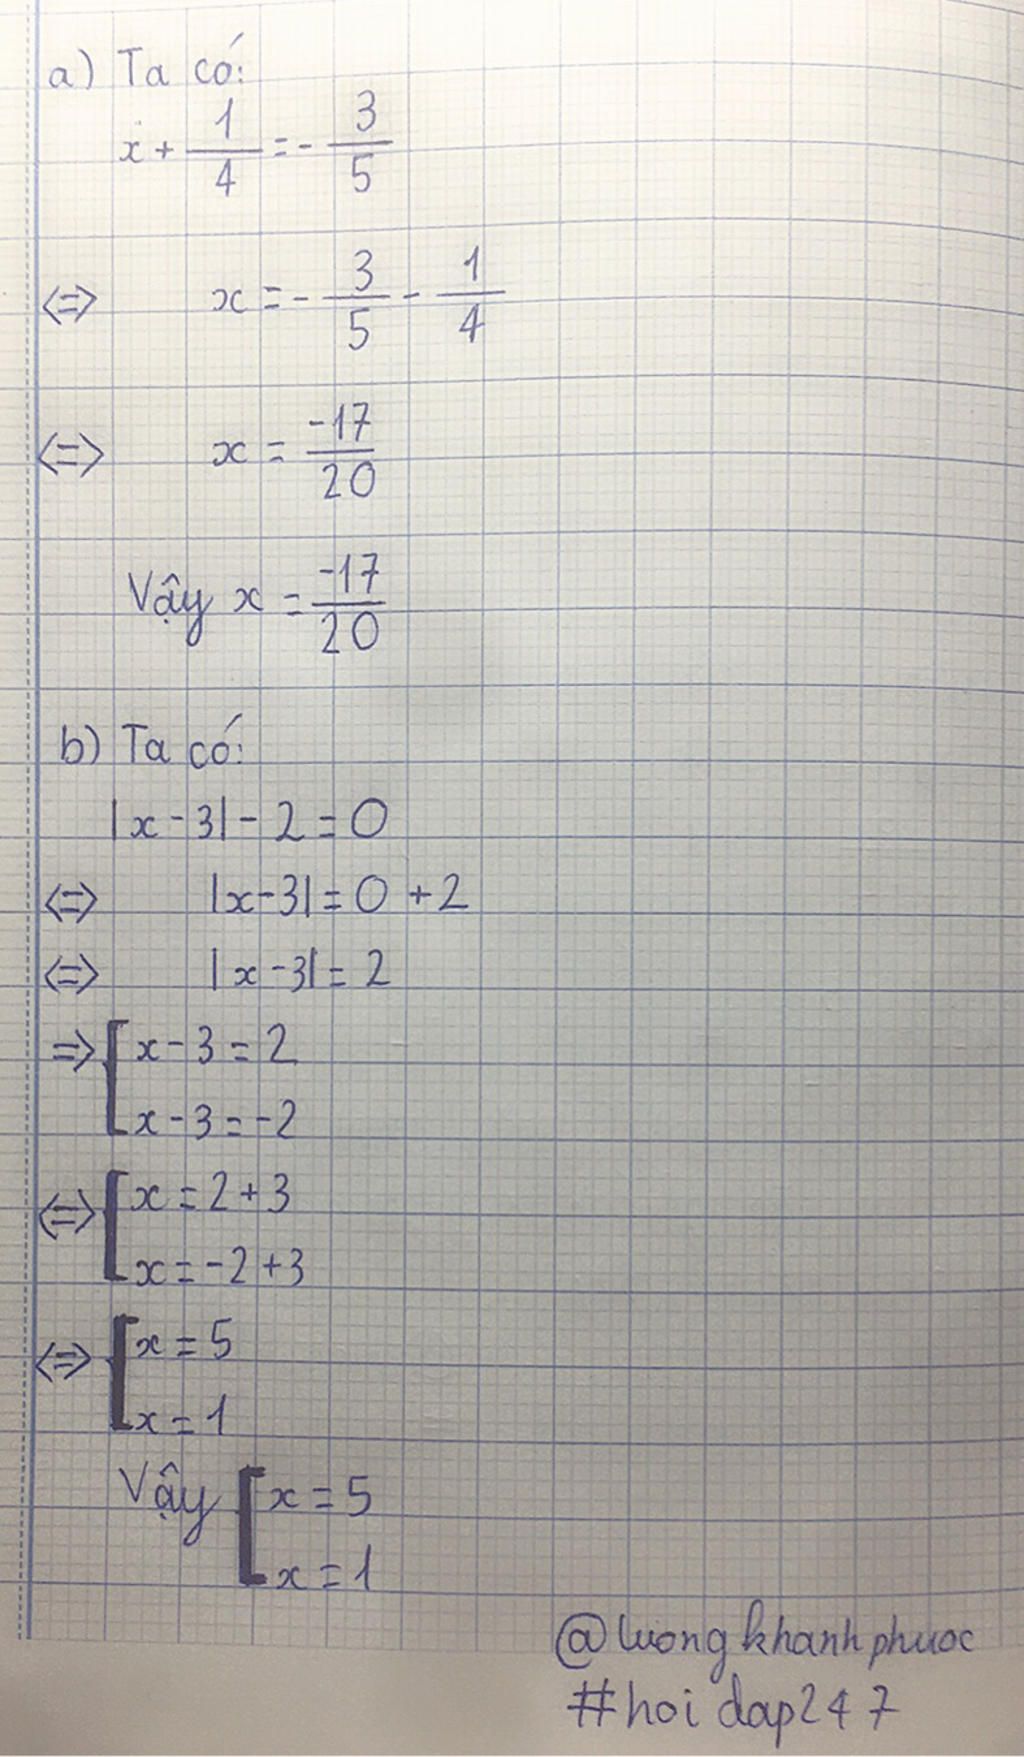 a) Ta có:
x + 1/4 = - 3/5
<=> x = - 3/5 - 1/4
<=> x = -17/20
Vậy x = -17/20
b) Ta có:
|x - 3| - 2 = 0
<=> |x - 3| = 0 + 2
<=> |x - 3| = 2
=> [ x - 3 = 2
x - 3 = -2
<=> [ x = 2 + 3
x = -2 + 3
<=> [ x = 5
x = 1
Vậy [ x = 5
x = 1
@luongkhanhphuoc
#hoidap247